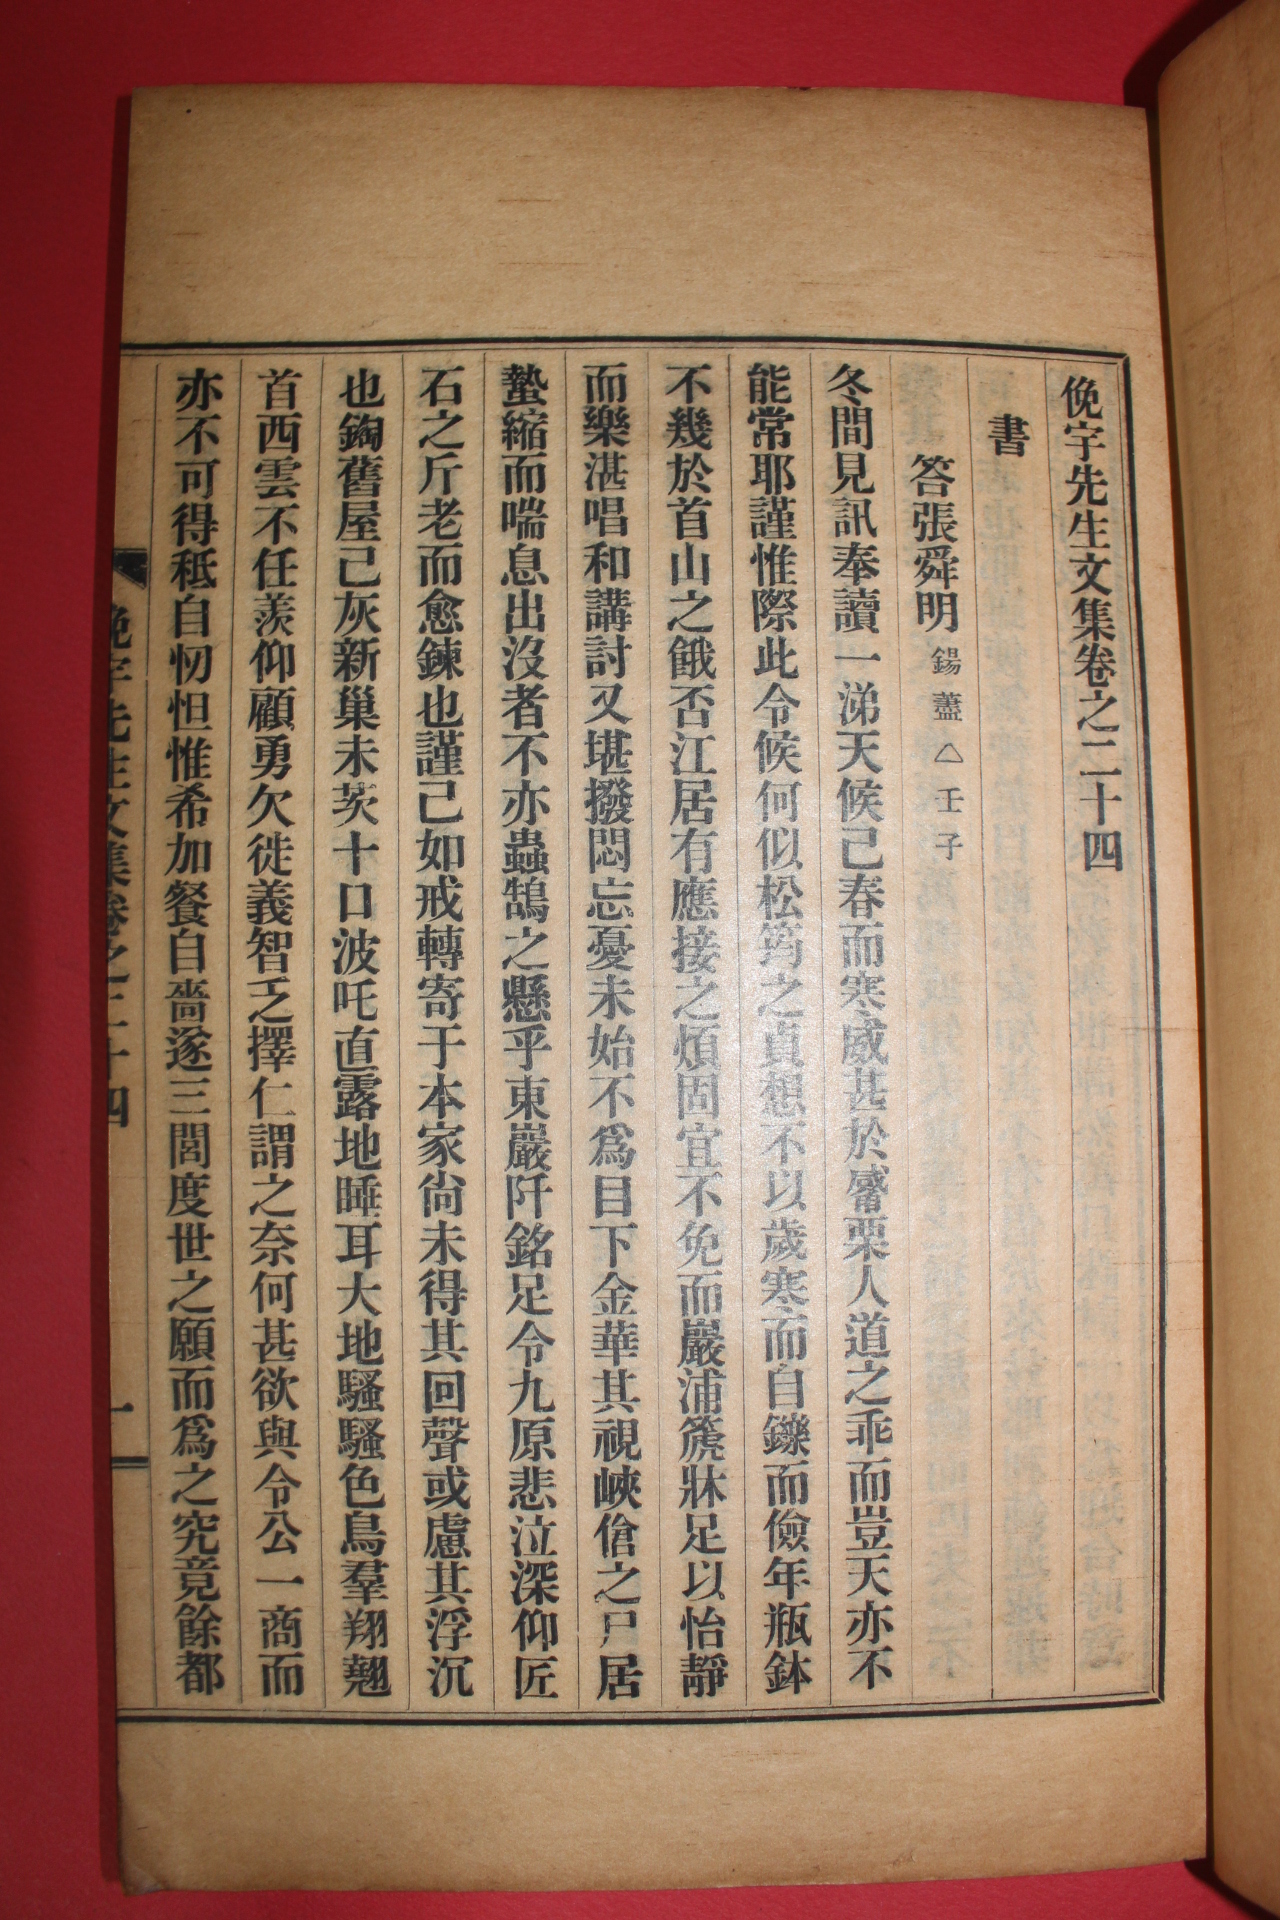 俛宇先生文集卷之二十四
書
答張舜明 錫藎 △壬子
冬間見訊奉讀一涕天候已春而寒威甚於觱栗人道之乖而豈天亦不
能常耶謹惟際此令候何似松筠之貞想不以歲寒而自鑠而儉年瓶鉢
不幾於首山之餓否江居有應接之煩固宜不免而巖浦篪牀足以怡靜
而樂湛唱和講討又堪撥悶忘憂未始不爲目下金華其視峽傖之尸居
蟄縮而喘息出沒者不亦蟲鵠之懸乎東巖阡銘足令九原悲泣深仰匠
石之斤老而愈鍊也謹已如戒轉寄于本家尙未得其回聲或慮其浮沉
也鋾舊屋已灰新巢未茨十口波吒直露地睡耳大地騷騷色鳥羣翔翹
首西雲不任羨仰顧勇欠徙義智乏擇仁謂之奈何甚欲與令公一商而
亦不可得秪自忉怛惟希加餐自嗇遂三閭度世之願而爲之究竟餘都
俛宇先生文集卷之二十四 一